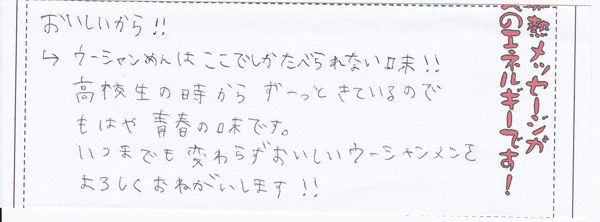 おいしいから!!
↳ ウーシャンめんはここでしかたべられない味!!
高校生の時から ずーっときているので
もはや 青春の味です。
いつまでも変わらずおいしいウーシャンメンを
よろしくおねがいします!!
熱メッセージが
のエネルギーです!